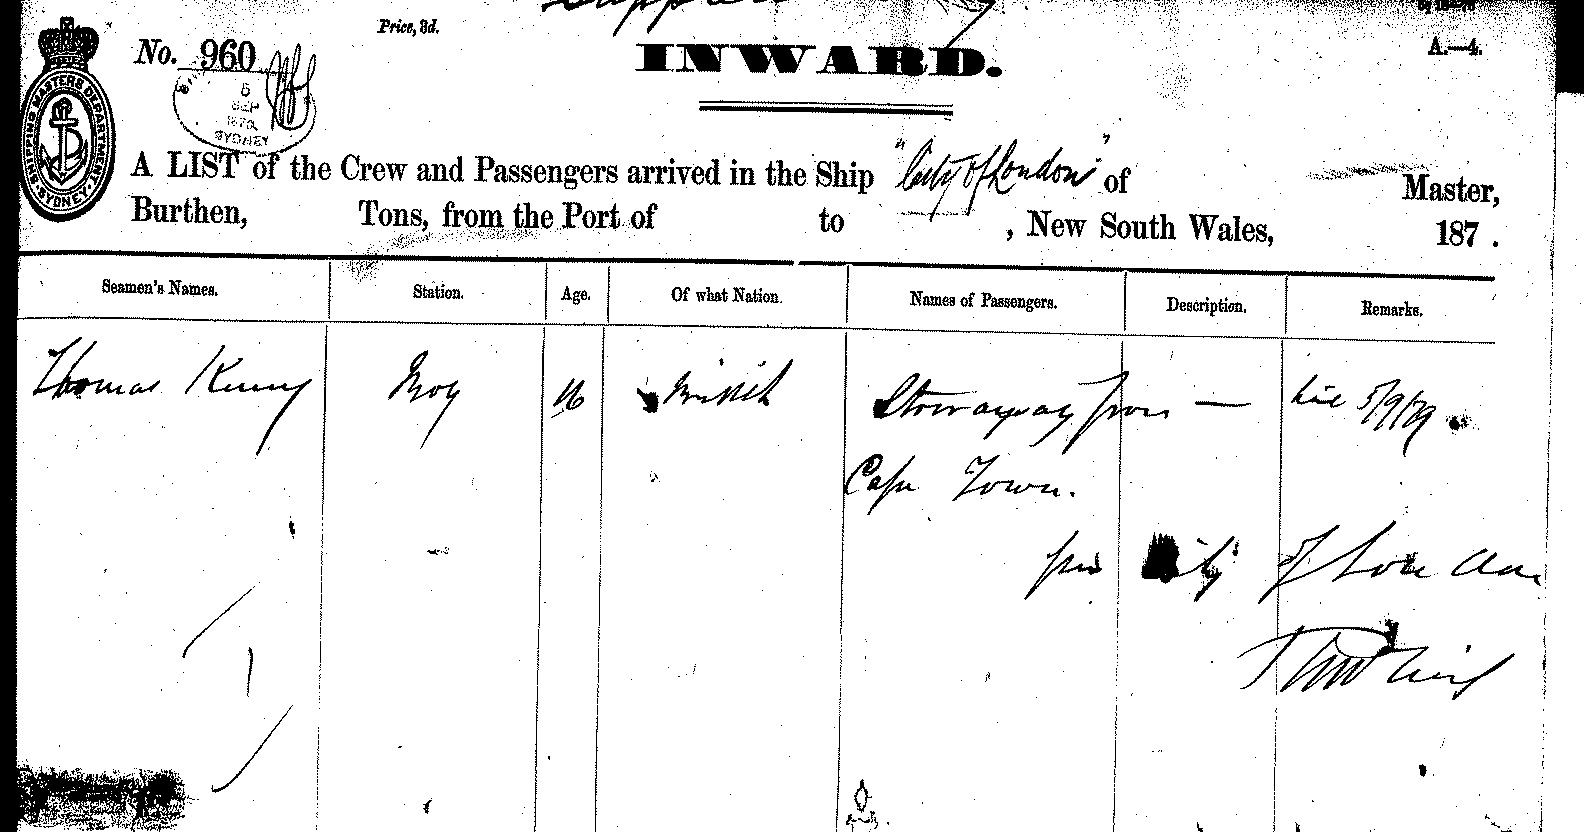 Price, 3d.
A.—4.
No. 960
INWARD.
SHIPPING MASTERS DEPARTMENT SYDNEY
5
SEP
SYDNEY
A LIST of the Crew and Passengers arrived in the Ship "City of London" of Master,
Burthen, Tons, from the Port of to , New South Wales, 187 .
Seamen's Names. Station. Age. Of what Nation. Names of Passengers. Description. Remarks.
Thomas Kenny Boy 16 British Stowaway from — 5/9/79
Cape Town.
City of London